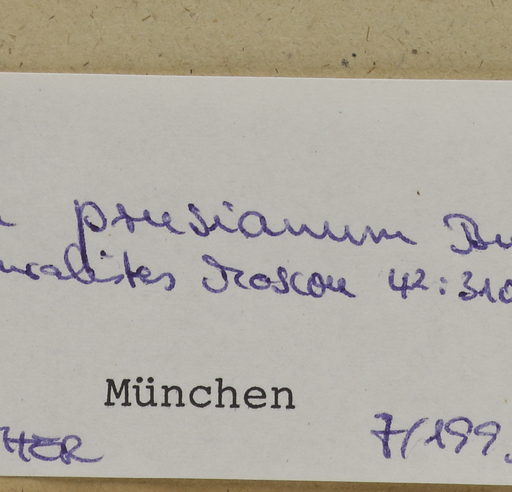 prusianum Bu
uralistes Moscou 42:310
München
HER 7/199